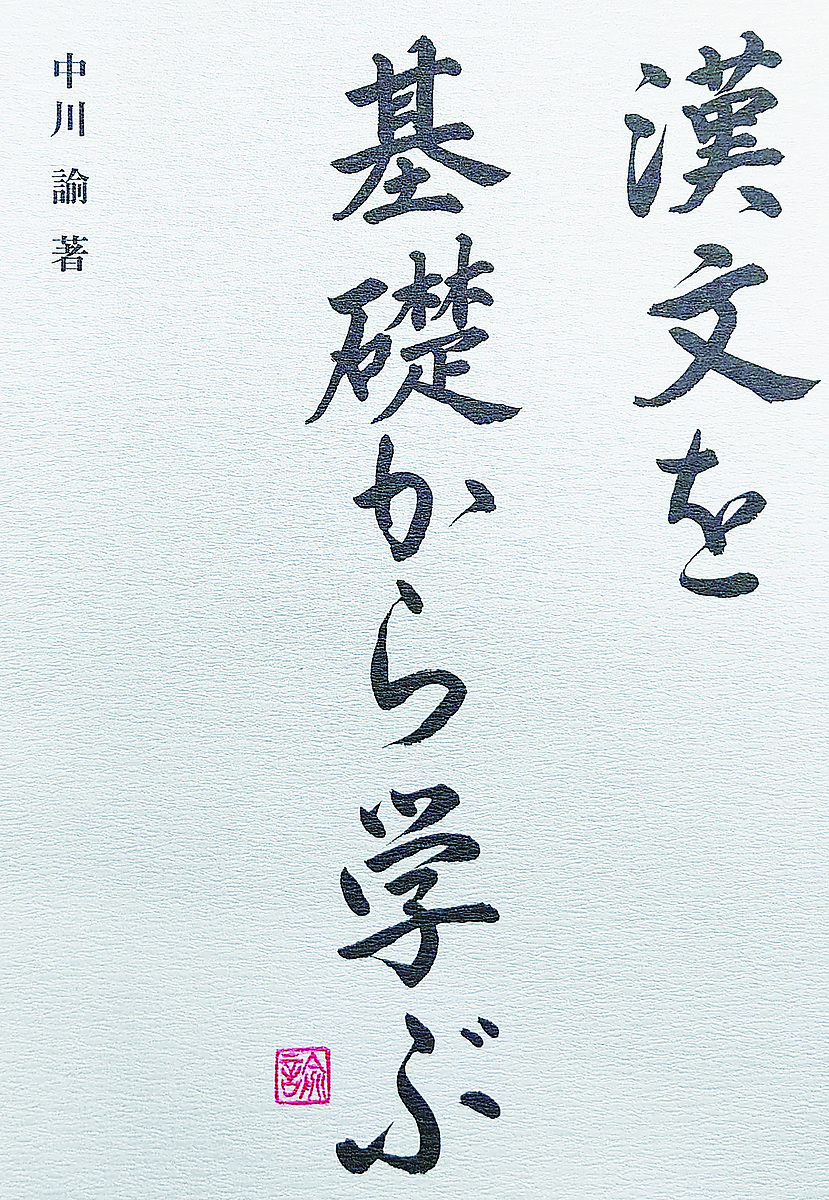 漢文を
基礎から学ぶ
諭
中川 諭 著